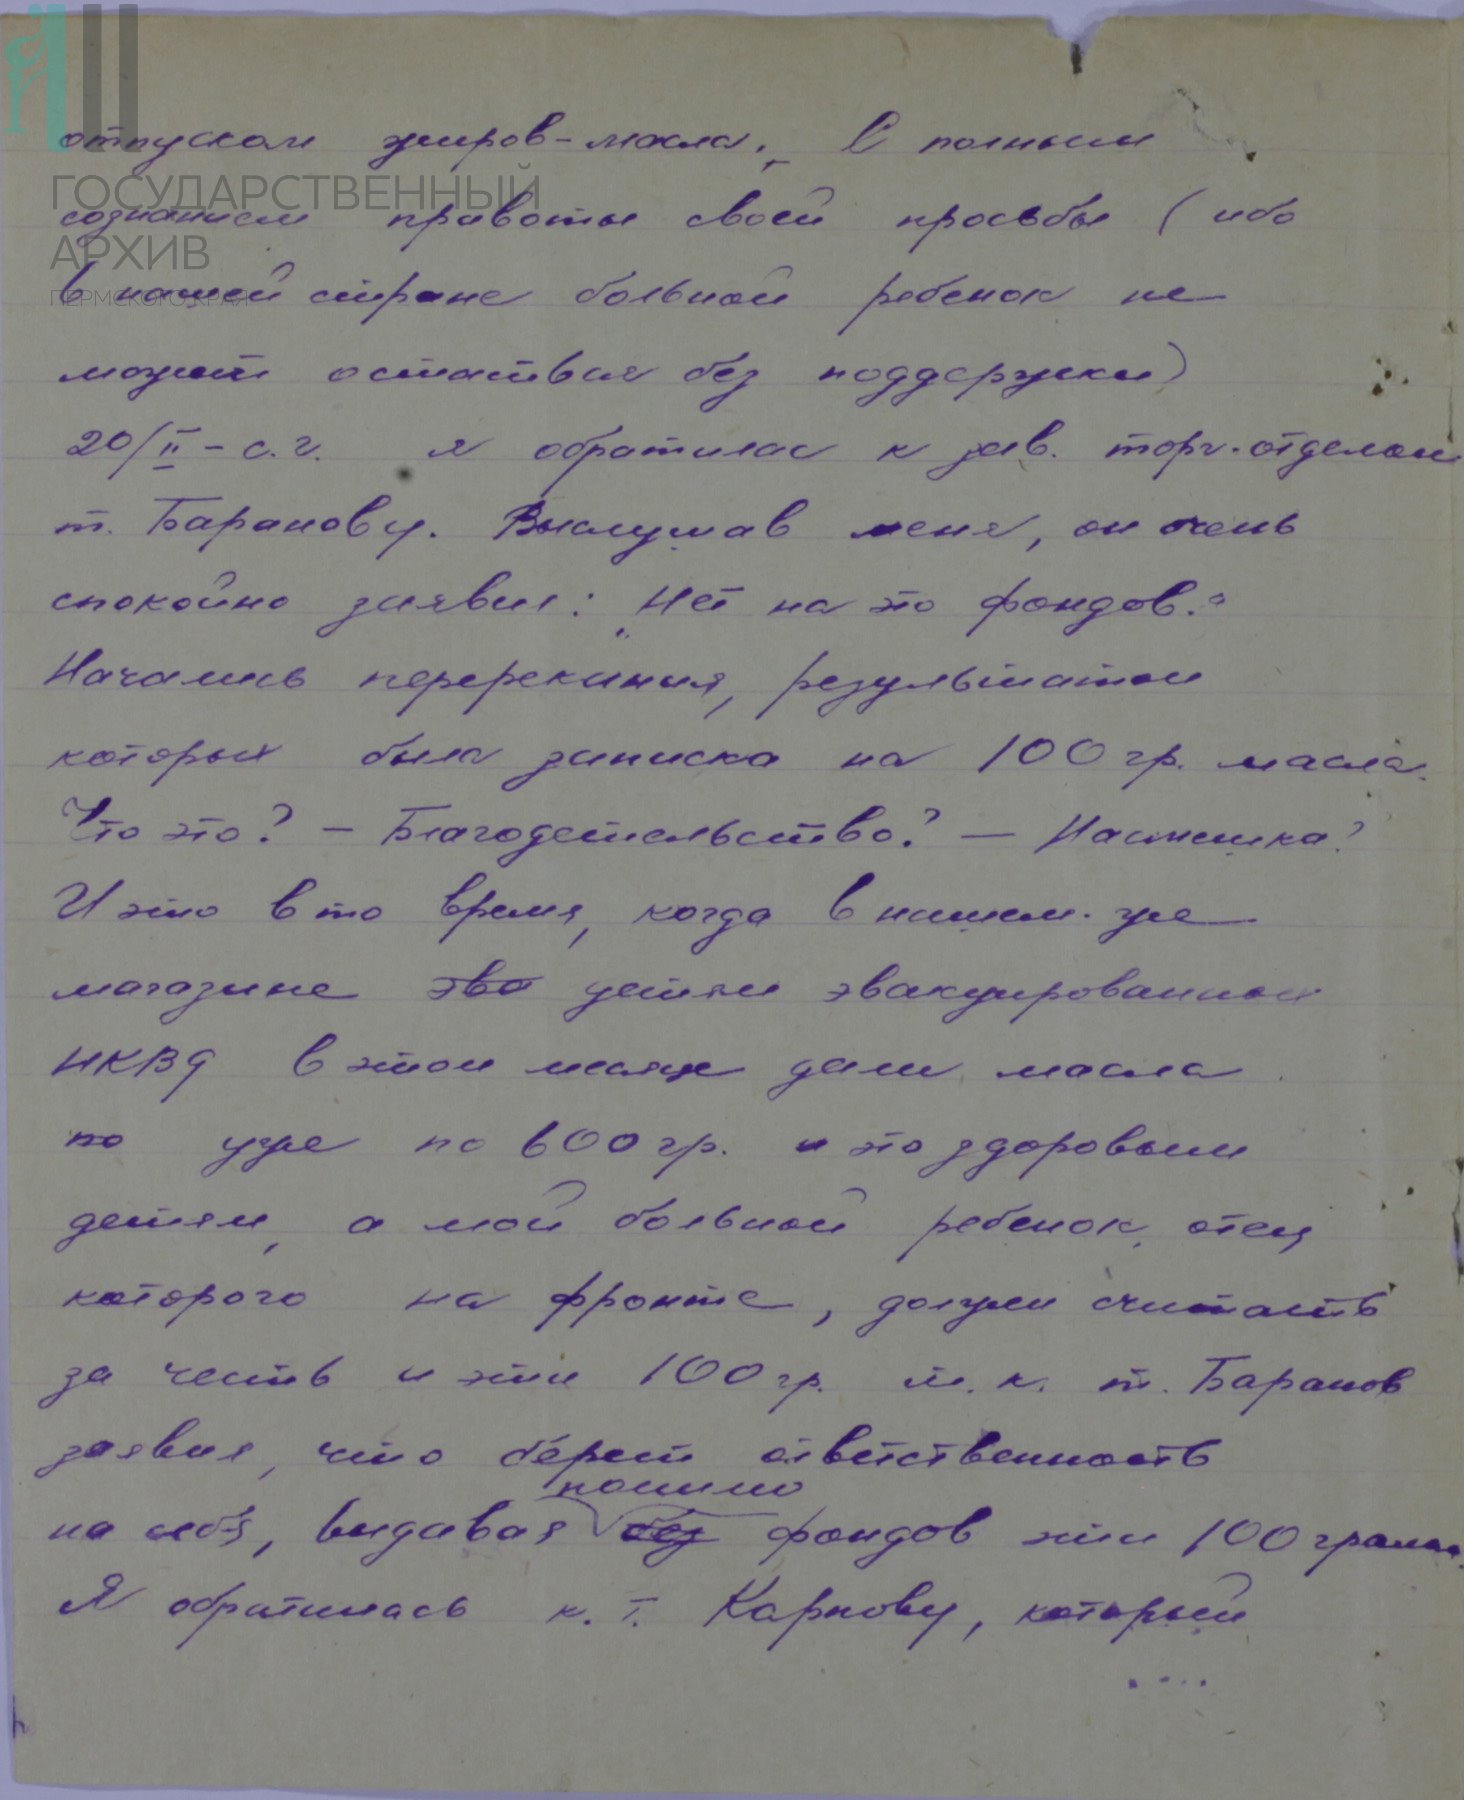 ГОСУДАРСТВЕННЫЙ
АРХИВ
ПЕРМСКОГО КРАЯ
отпуском жиров-масла. С полным
сознанием правоты своей просьбы (ибо
в нашей стране больной ребенок не
может остаться без поддержки)
20/II - с.г. я обратилас к зав. торг. отделом
т. Баранову. Выслушав меня, он очень
спокойно заявил: "Нет на это фондов."
Начались перерекания, результатом
которых была записка на 100 гр. масла.
Что это? - Благодетельство? - Насмешка?
И это в то время, когда в нашем же
магазине эва детям эвакуированным
НКВД в этом месяце дали масла
по уже по 600 гр. и это здоровым
детям, а мой больной ребенок, отец
которого на фронте, должен считать
за честь и эти 100 гр. т.к. т. Баранов
заявил, что берет ответственность
помимо
на себя, выдавая без фондов эти 100 грамм.
Я обратилась к. т. Карпову, который